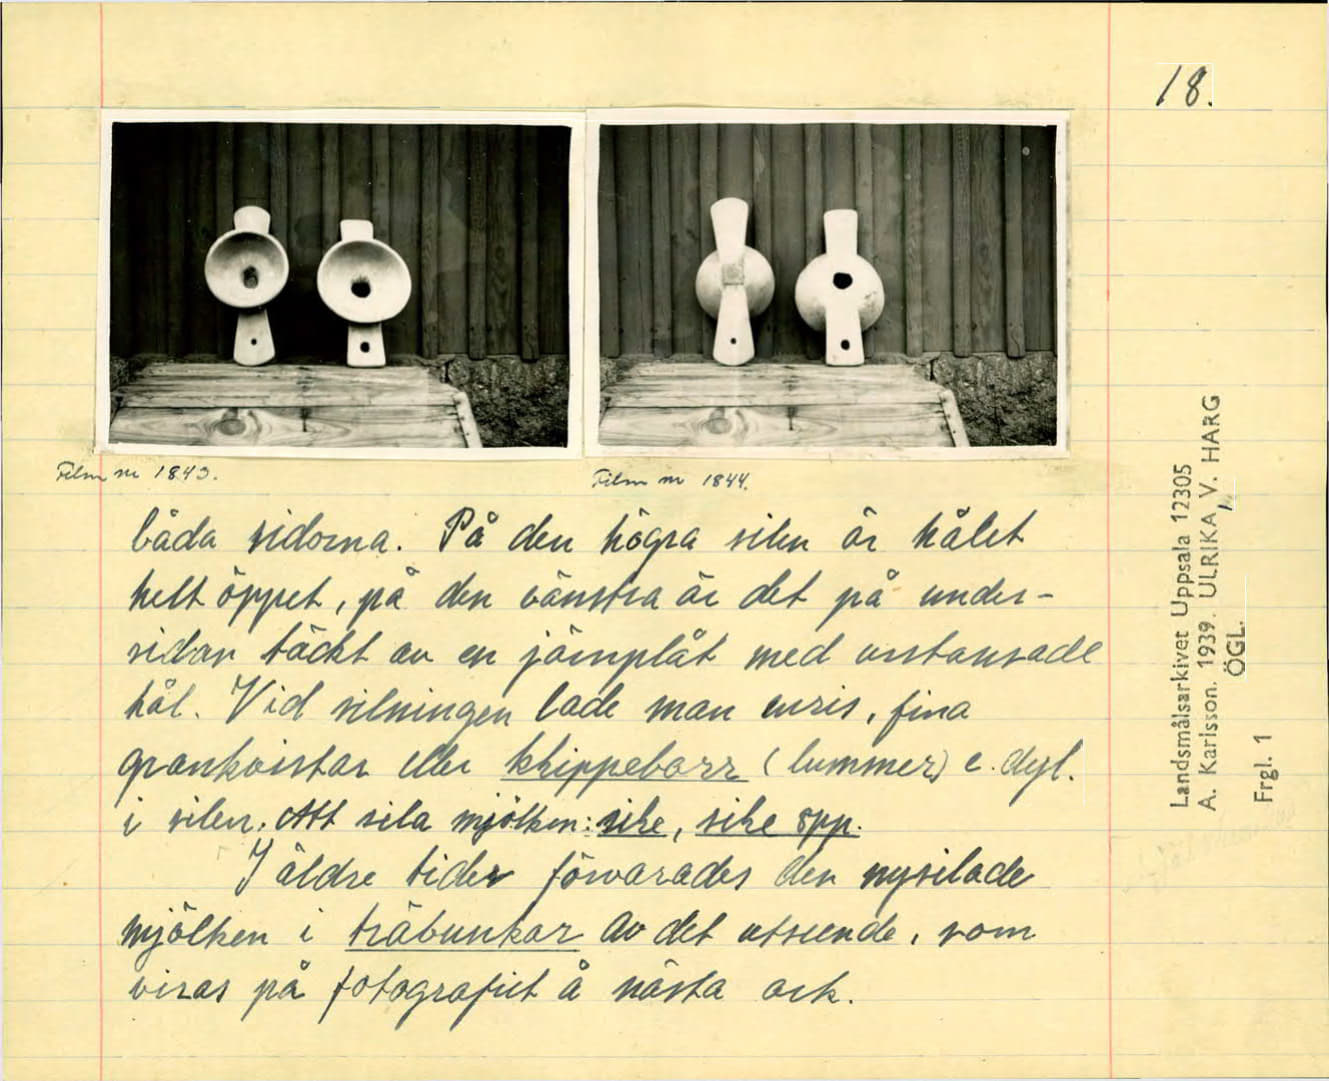 18.
Film nr 1843.
Film nr 1844.
båda sidorna. På den högra silen är hålet
helt öppet, på den vänstra är det på under-
sidan täckt av en järnplåt med utstansade
hål. Vid silningen lade man enris, fina
grankvistar eller (lummer) e. dyl.
i silen. Att sila mjölken: sile, sile opp.
I äldre tider förvarades den nysilade
mjölken i träbunkar av det utseende, som
visas på fotografiet å nästa ark.
Landsmålsarkivet Uppsala 12305
A. Karlsson. 1939. ULRIKA, V. HARG
ÖGL.
Frgl. 1